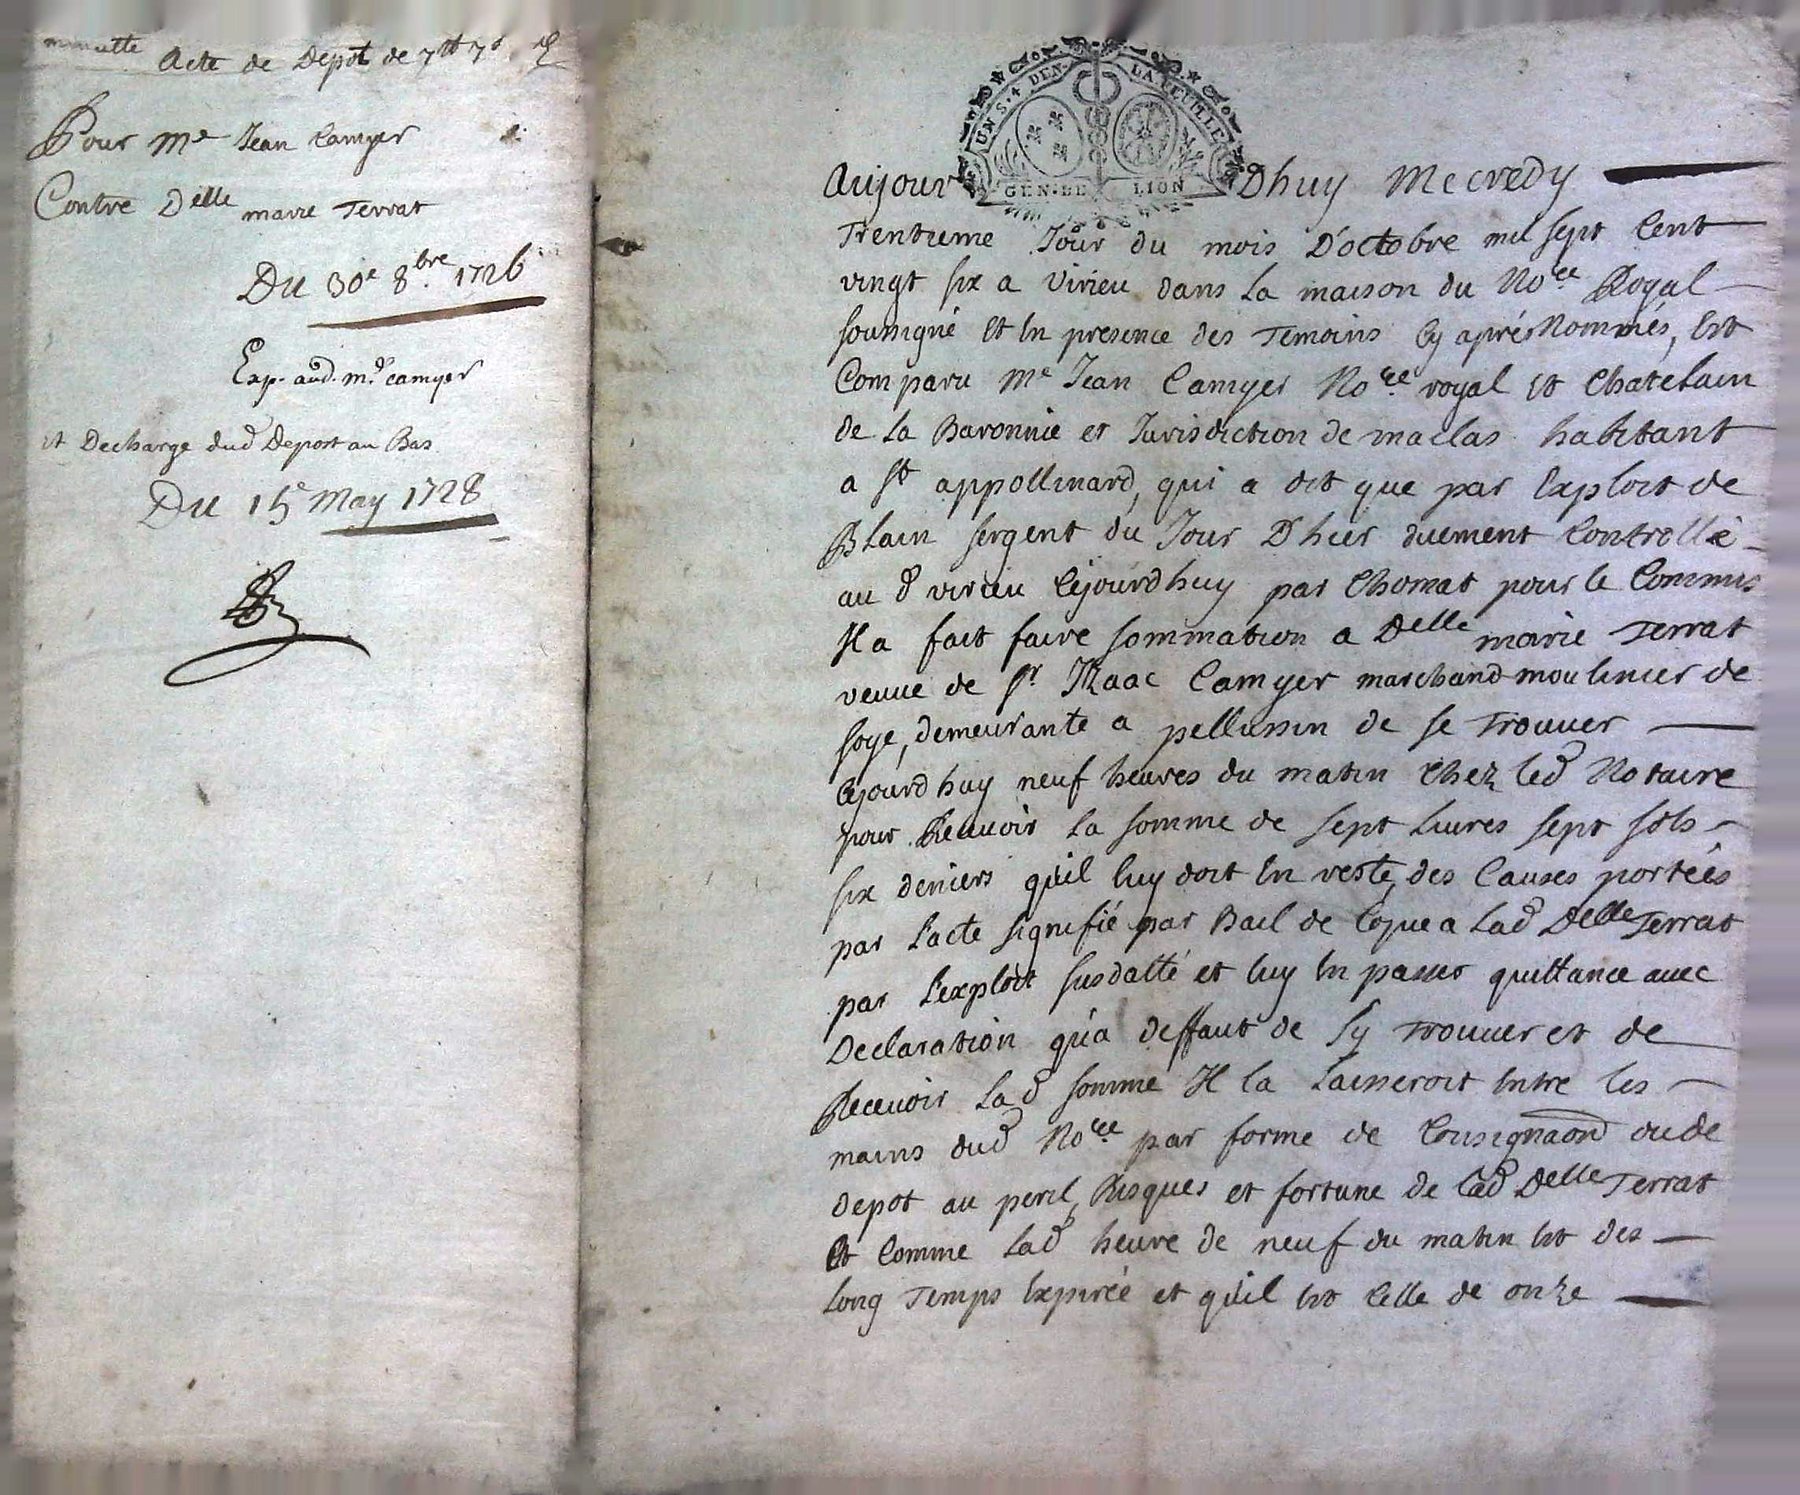 minutte Acte de Depot de 7tt 7s
Pour Me Jean Camyer
Contre Delle marie Terrat
Du 30e 8bre. 1726
Exp. aud. me camyer
et Decharge dud Depost au Bas
Du 15e May 1728
UN S. 4 DEN. LA FEUILLE
GEN. DE LION
Aujour Dhuy Mecredy
Trentieme Jour du mois D'octobre mil sept Cent
vingt six a Virieu dans La maison du Nore Royal
soussigné Et En presence des Temoins Cy aprés Nommés, Est
Comparu Me Jean Camyer Nore royal Et Chatelain
de La Baronnie et Jurisdiction de maclas habitant
a St appollinard, qui a dit que par Exploit de
Blain sergent du Jour D'hier duement Controllé
au d virieu Cejourdhuy par Chomat pour le Commis
Il a fait faire sommation a Delle marie Terrat
veuue de Sr Izaac Camyer marchand moulinier de
soye, demeurante a pellussin de se Trouuer
Cejourdhuy neuf heures du matin Chez led Notaire
pour Receuoir La somme de sept Liures sept sols
six deniers qu'il luy doit En reste, des Causes portéés
par L'acte signifié par Bail de Copie a Lad Delle Terrat
par L'exploit susdatté et luy En passer quittance auec
Declaration qu'a deffaut de sy Trouuer et de
Receuoir Lad somme Il la Laisseroit Entre les
mains dud Nore par forme de Consignaon ou de
depot au peril, Risques et fortune de Lad Delle Terrat
Et Comme Lad heure de neuf du matin Est des
Long Temps Expirée et qu'il Est Celle de onze